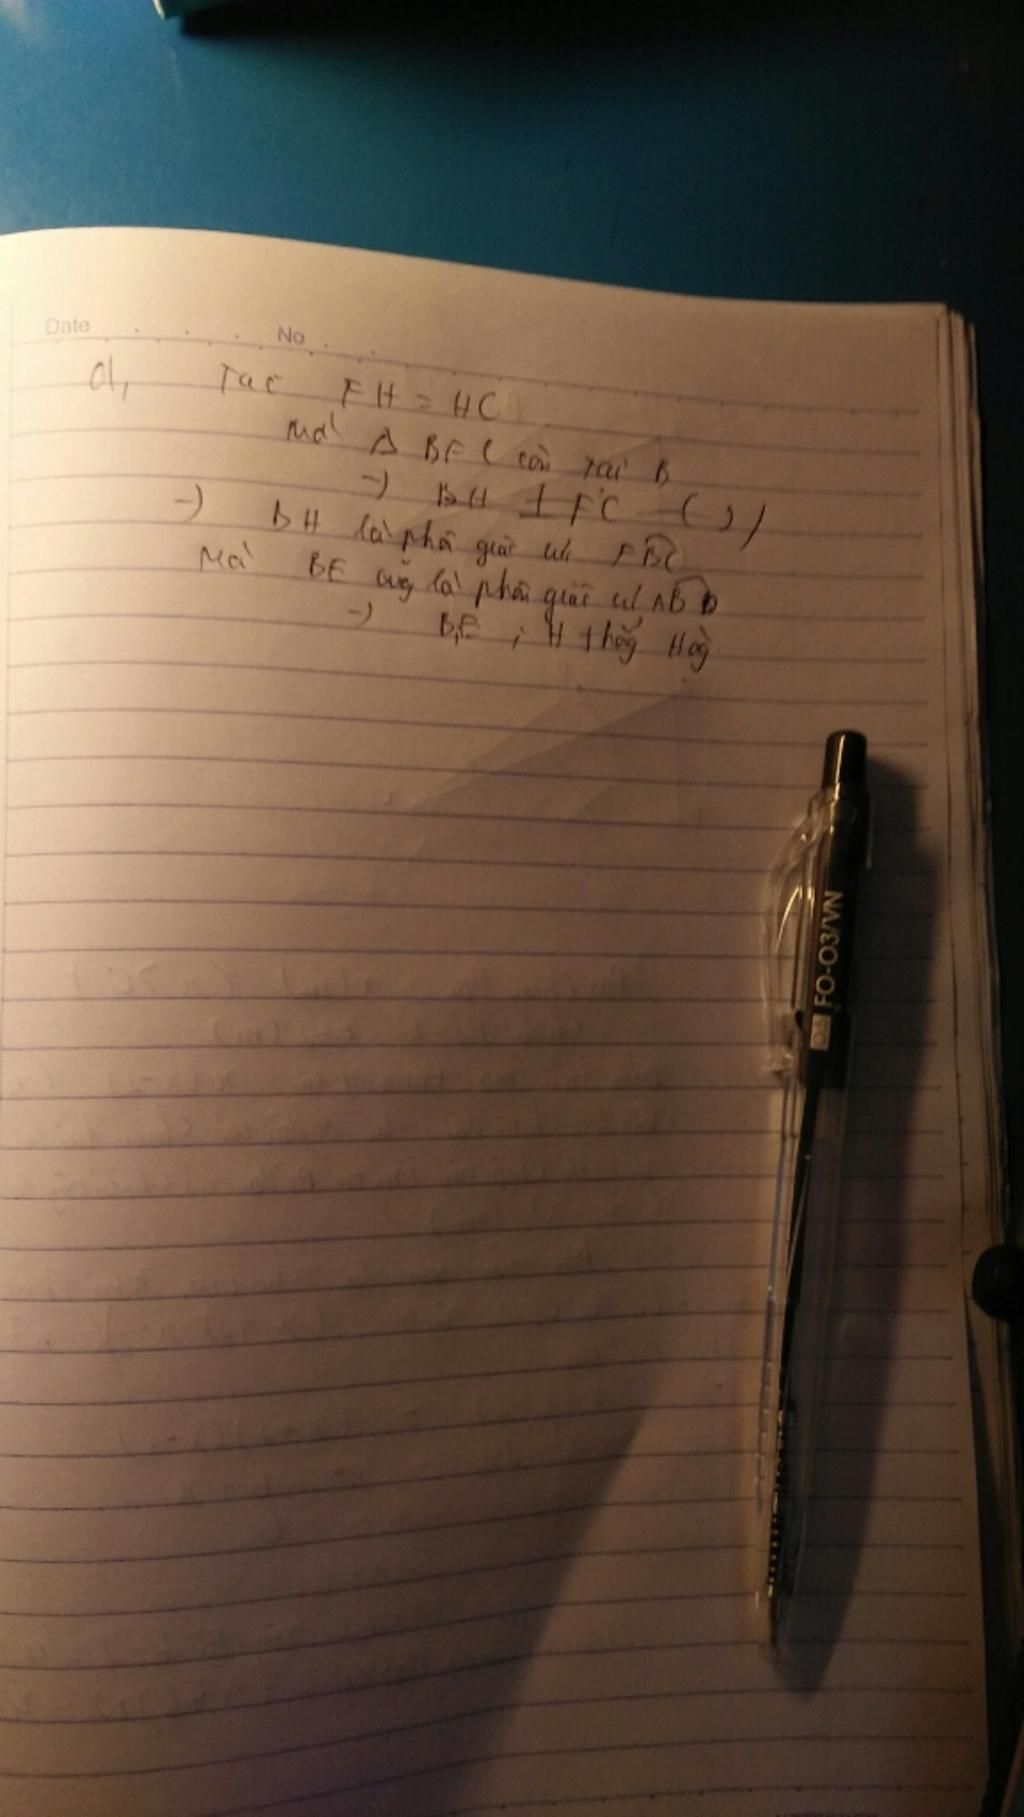 Date No
d,
Ta có FH = HC
Mà Δ BFC cân tại B
-) BH ⊥ FC
-) BH là phân giác FBC
Mà BE cũg là phân giác ABD
-) B,E ; H thẳg Hàg
0.5 FO-03/VN